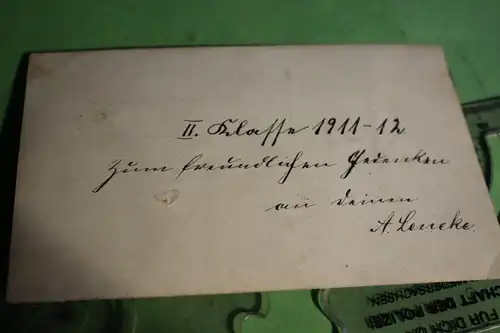 II. Klasse 1911-12
Zum freundlichen Gedenken
an deinen
A. Leneke.
FÜR DICH
SCHAFT DER POLIZEI
NIEDERSACHSEN